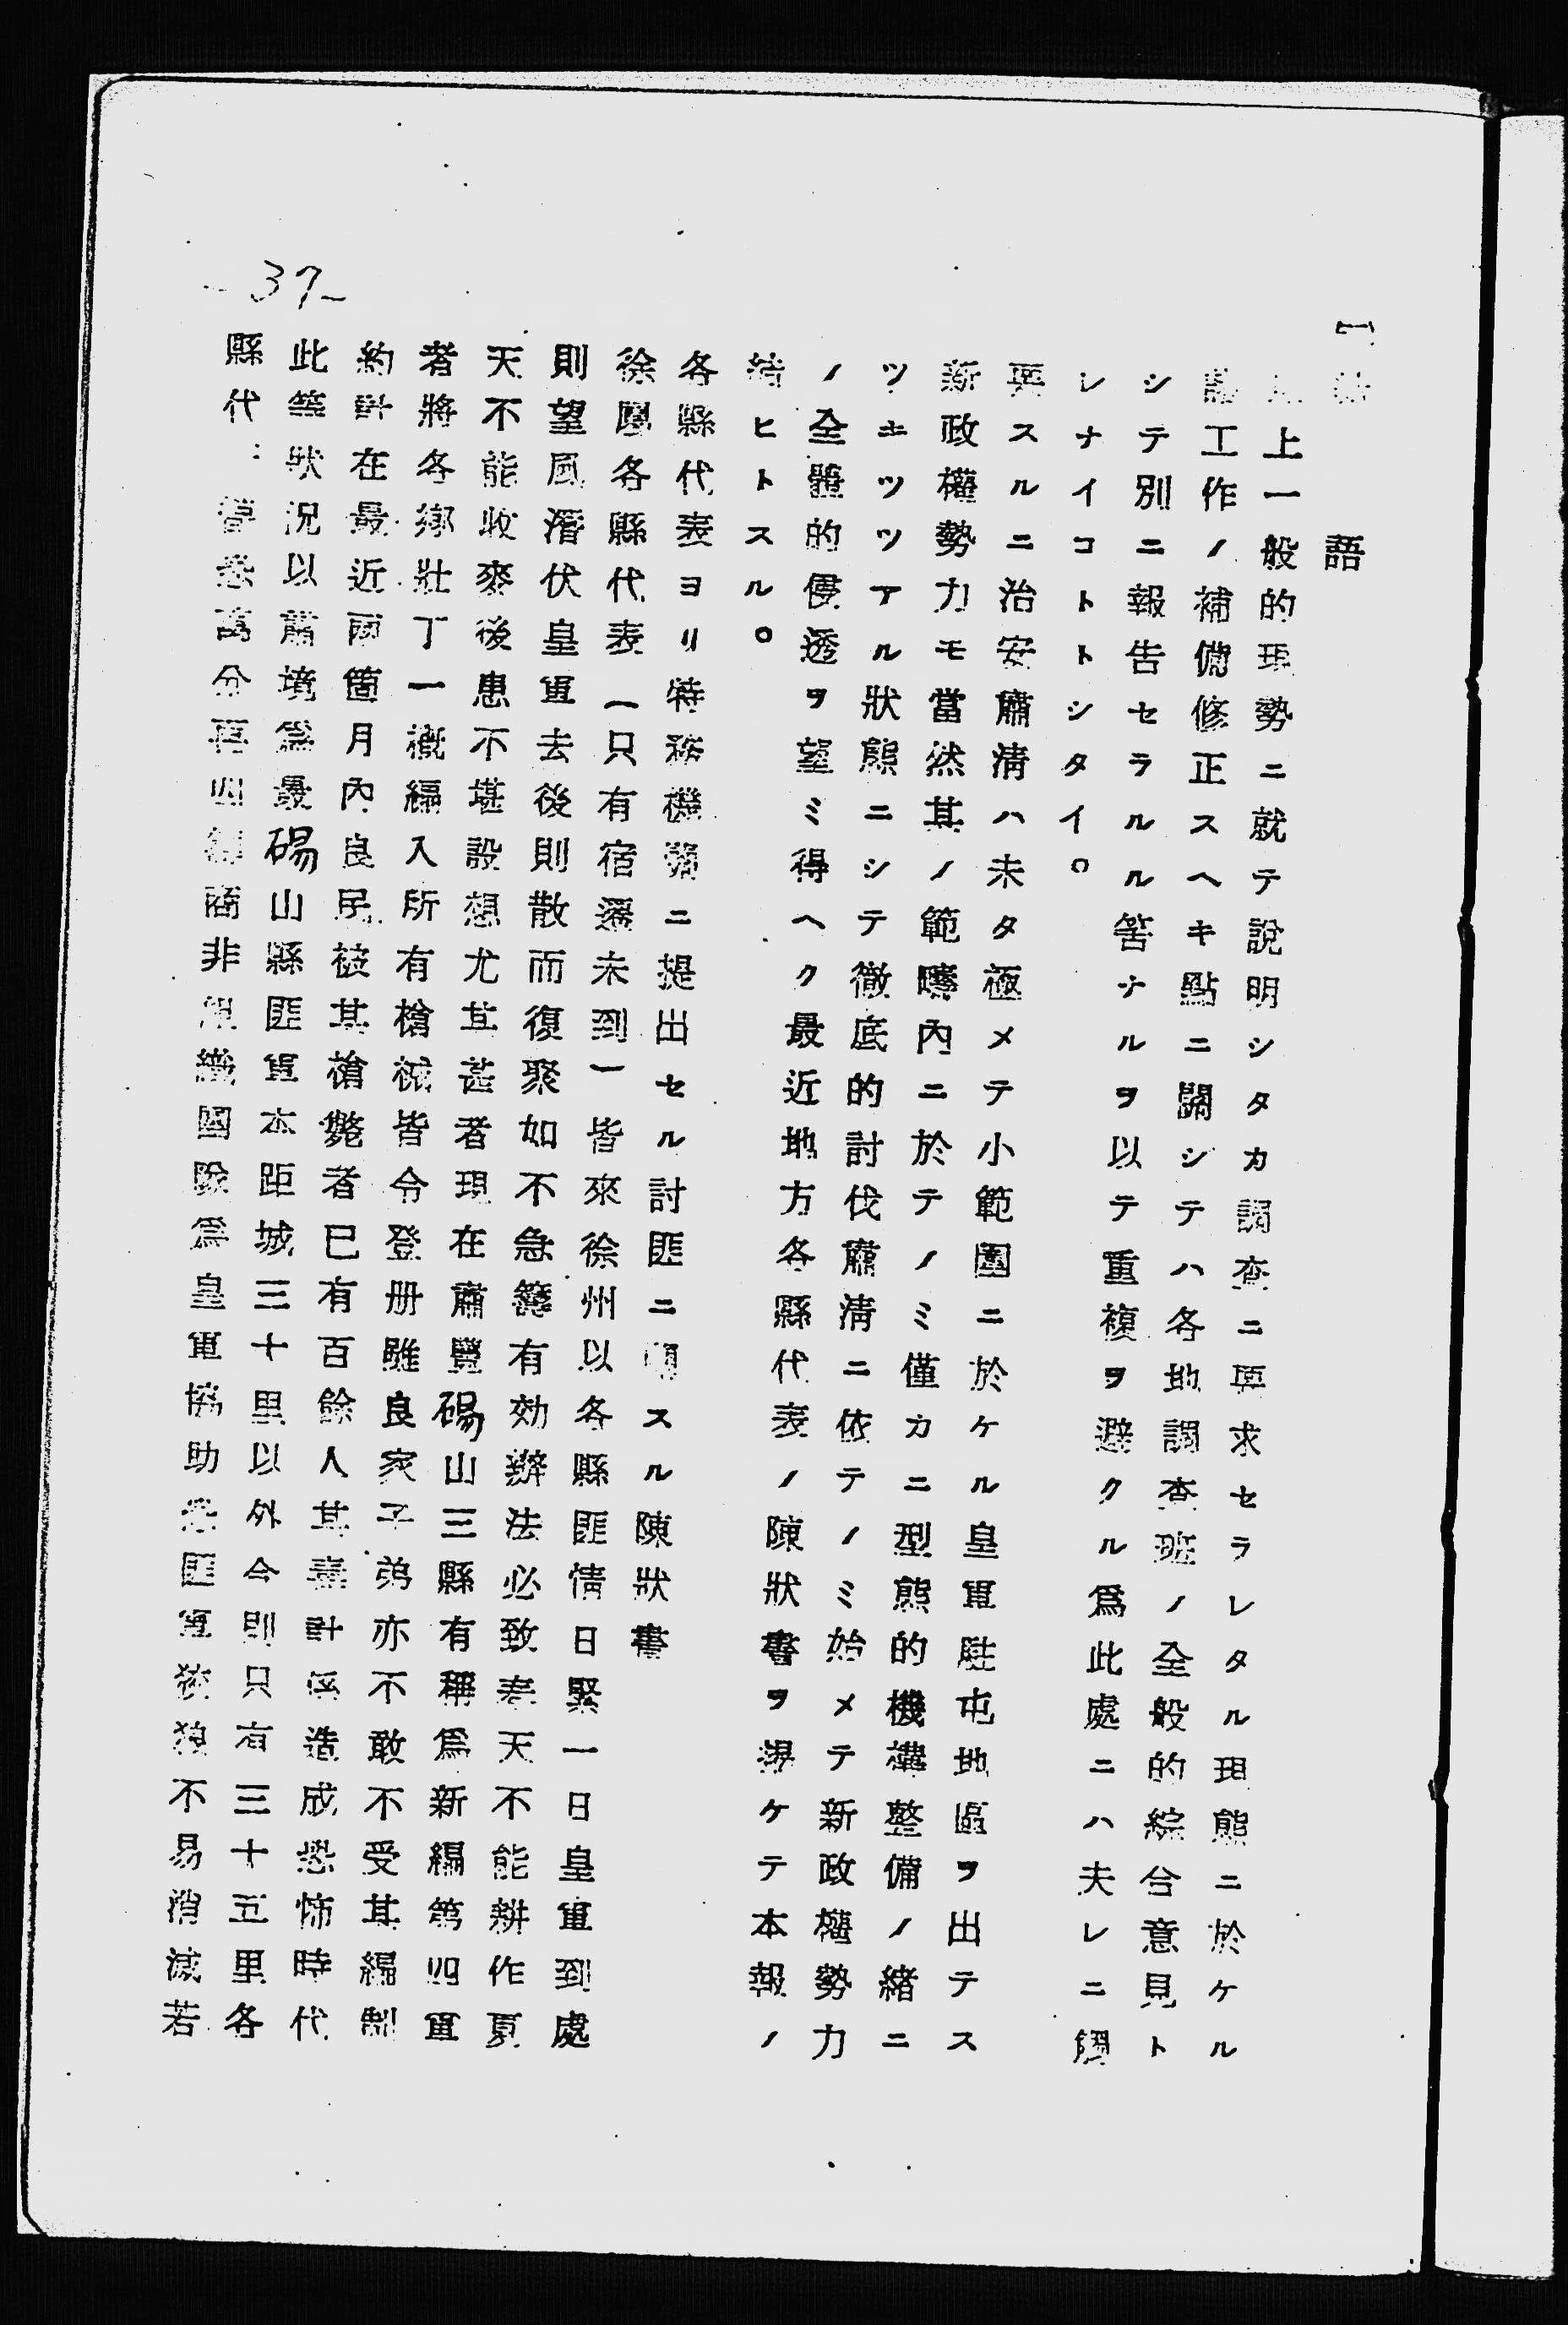 結語
以上一般的現勢ニ就テ說明シタカ調査ニ要求セラレタル現態ニ於ケル
諸工作ノ補備修正スヘキ點ニ關シテハ各地調查班ノ全般的綜合意見ト
シテ別ニ報告セラルル筈ナルヲ以テ重複ヲ避クル爲此處ニハ夫レニ觸
レナイコトトシタイ。
要スルニ治安肅淸ハ未タ極メテ小範圍ニ於ケル皇軍駐屯地區ヲ出テス
新政權勢力モ當然其ノ範疇內ニ於テノミ僅カニ型態的機構整備ノ緖ニ
ツキツツアル狀態ニシテ徹底的討伐肅淸ニ依テノミ始メテ新政權勢力
ノ全體的侵透ヲ望ミ得ヘク最近地方各縣代表ノ陳狀書ヲ揭ケテ本報ノ
結ヒトスル。
各縣代表ヨリ特務機關ニ提出セル討匪ニ關スル陳狀書
徐屬各縣代表（只有宿遷未到）皆來徐州以各縣匪情日緊一日皇軍到處
則望風潛伏皇軍去後則散而復聚如不急籌有効辦法必致春天不能耕作夏
天不能收麥後患不堪設想尤其甚者現在蕭豐碭山三縣有稱爲新編第四軍
者將各鄕壯丁一槪編入所有槍械皆令登册雖良家子弟亦不敢不受其編制
約計在最近兩箇月內良民被其槍斃者已有百餘人其毒計係造成恐怖時代
此等狀況以蕭境爲最碭山縣匪軍本距城三十里以外今則只有三十五里各
縣代 恐萬分再四 商非組織國隊爲皇軍協助恐匪軍 猖不易消滅若
-37-